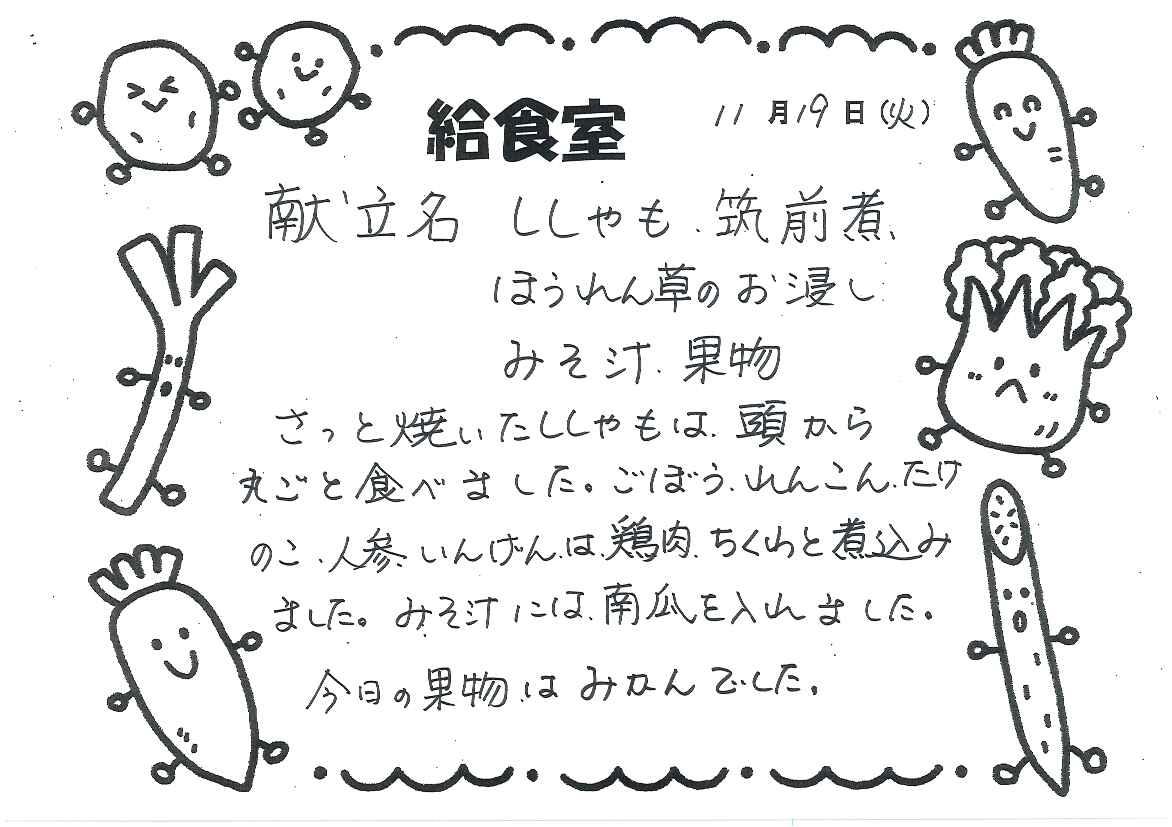 給食室 11月19日(火)
献立名 ししゃも、筑前煮、
ほうれん草のお浸し
みそ汁、果物
さっと焼いたししゃもは、頭から
丸ごと食べました。ごぼう、れんこん、たけ
のこ、人参、いんげん、は、鶏肉、ちくわと煮込み
ました。みそ汁には、南瓜を入れました。
今日の果物はみかんでした。